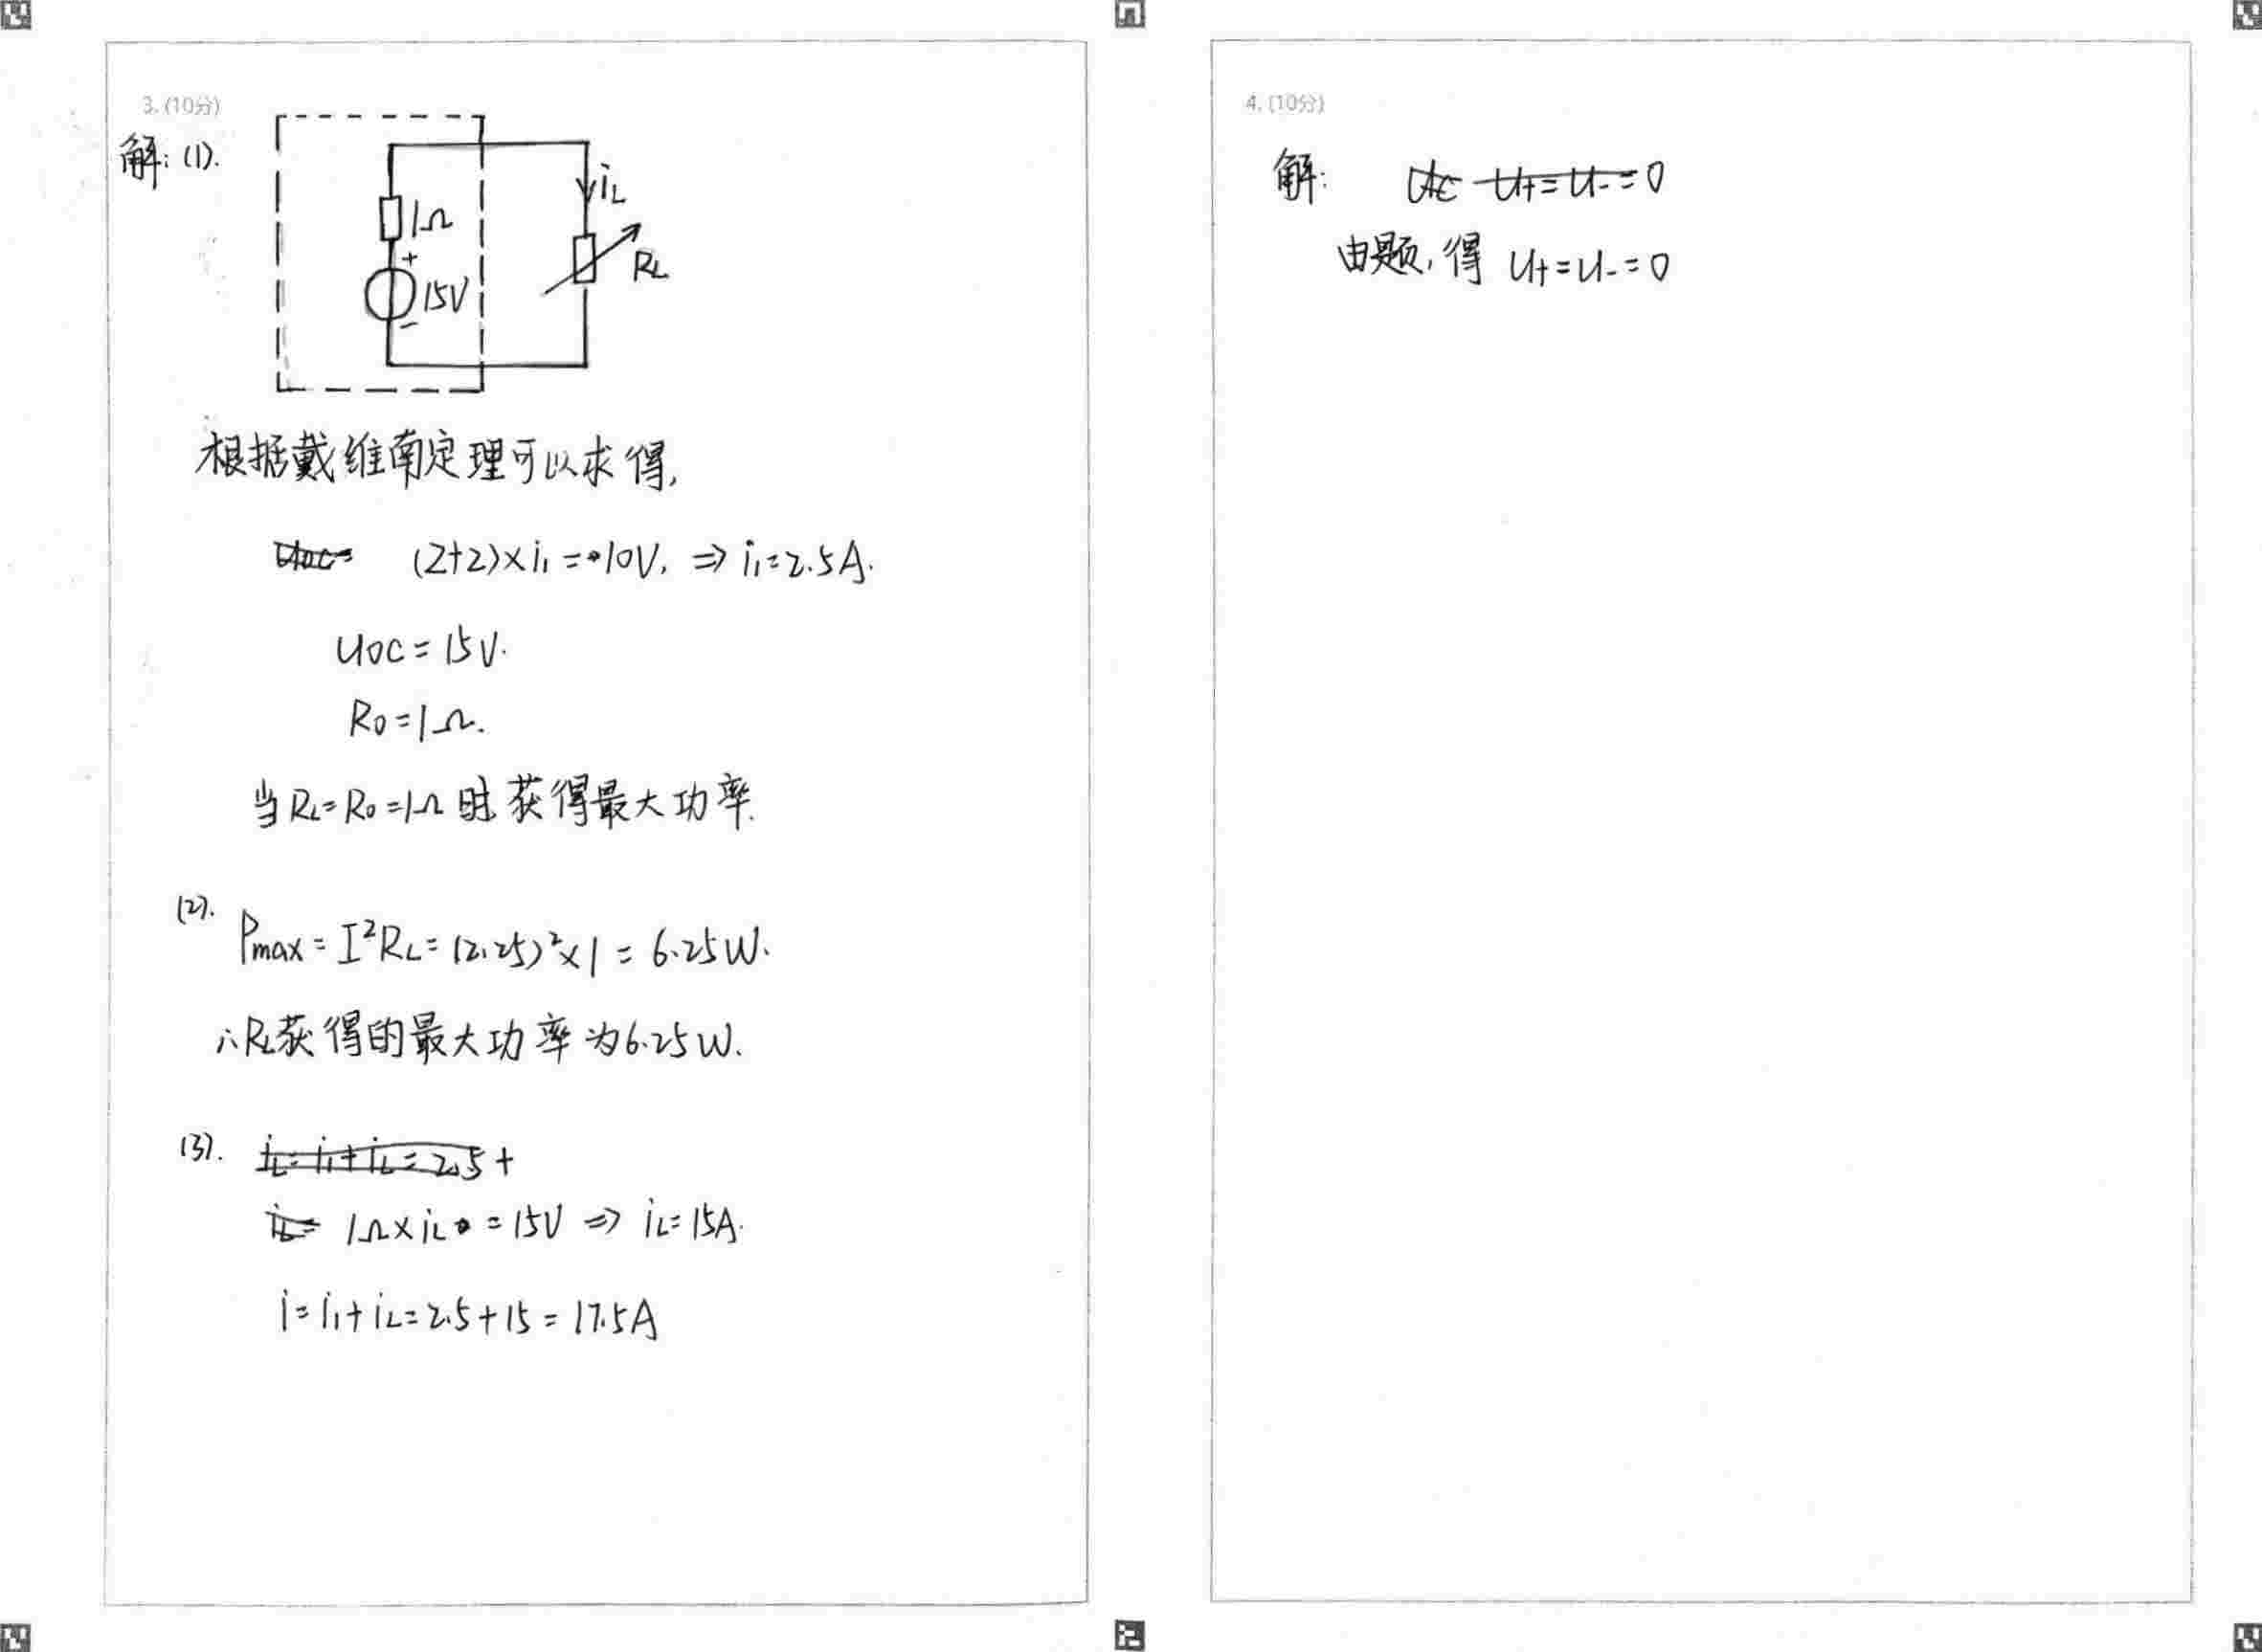 3. (10分)
解: (1).
1Ω
+
15V
-
iL
RL
根据戴维南定理可以求得,
(2+2)×i₁=10V, ⇒ i₁=2.5A.
UOC=15V.
R0=1Ω.
当RL=R0=1Ω时获得最大功率.
(2).
Pmax=I²RL=(2.25)²×1=6.25W.
∴RL获得的最大功率为6.25W.
(3). iL=i₁+iL=2.5+
iL= 1Ω×iL=15V ⇒ iL=15A.
i=i₁+iL=2.5+15=17.5A
4. (10分)
解: U+=U-=0
由题,得 U+=U-=0